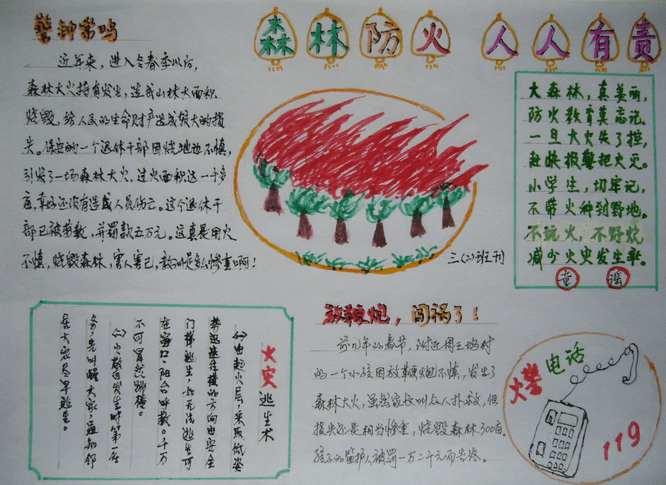 森林防火 人人有责
警钟常鸣
近年来，进入冬春季以后，
森林大火时有发生，造成山林大面积
烧毁，给人民的生命财产造成很大的损
失。保定的一个退休干部因烧地边不慎，
引发了一场森林大火，过火面积达一千多
亩，幸好还没有造成人员伤亡。这个退休干
部已被拘教，并罚款五万元，这真是用火
不慎，烧毁森林，害人害己，教训是多么惨重啊！
三(2)班刊
大森林，真美丽，
防火教育莫忘记，
一旦大火失了控，
赶快报警把火灭。
小学生，切牢记，
不带火种到野地。
不玩火，不野炊，
减少火灾发生率。
童谣
火灾逃生术
(一)由起火层，采取低姿
势迅速往楼的方向由安全
门梯逃生，如无法逃生可
在窗口、阳台呼救。千万
不可冒然跳楼。
(二)火灾发生时第一层
务，先叫醒大家，通知邻
居大家尽早逃生。
放鞭炮，闯祸了！
前几年的春节，附近
的一个小孩因放鞭炮不慎，发生了
森林大火，虽然家长叫众人扑救，但
损失还是相当惨重，烧毁森林300亩，
孩子的监护人被罚一万二千元而告终。
火警电话
119